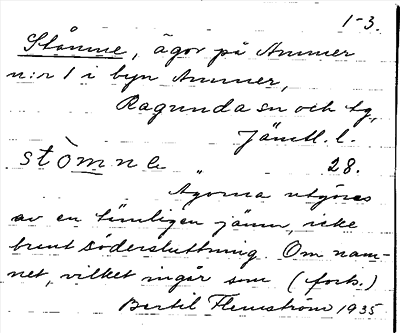 1-3.
Stånne, ägor på Ammer
n:r 1 i byn Ammer,
Ragunda sn och tg,
Jämtl. l.
stòmne 28.
Ägorna utgöres
av en tämligen jämn, icke
brant södersluttning. Om nam-
net, vilket ingår som (forts.)
Bertil Flemström 1935